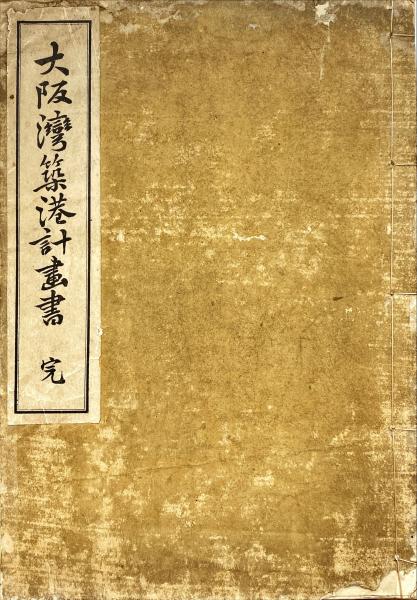 大阪灣築港計畫書 完